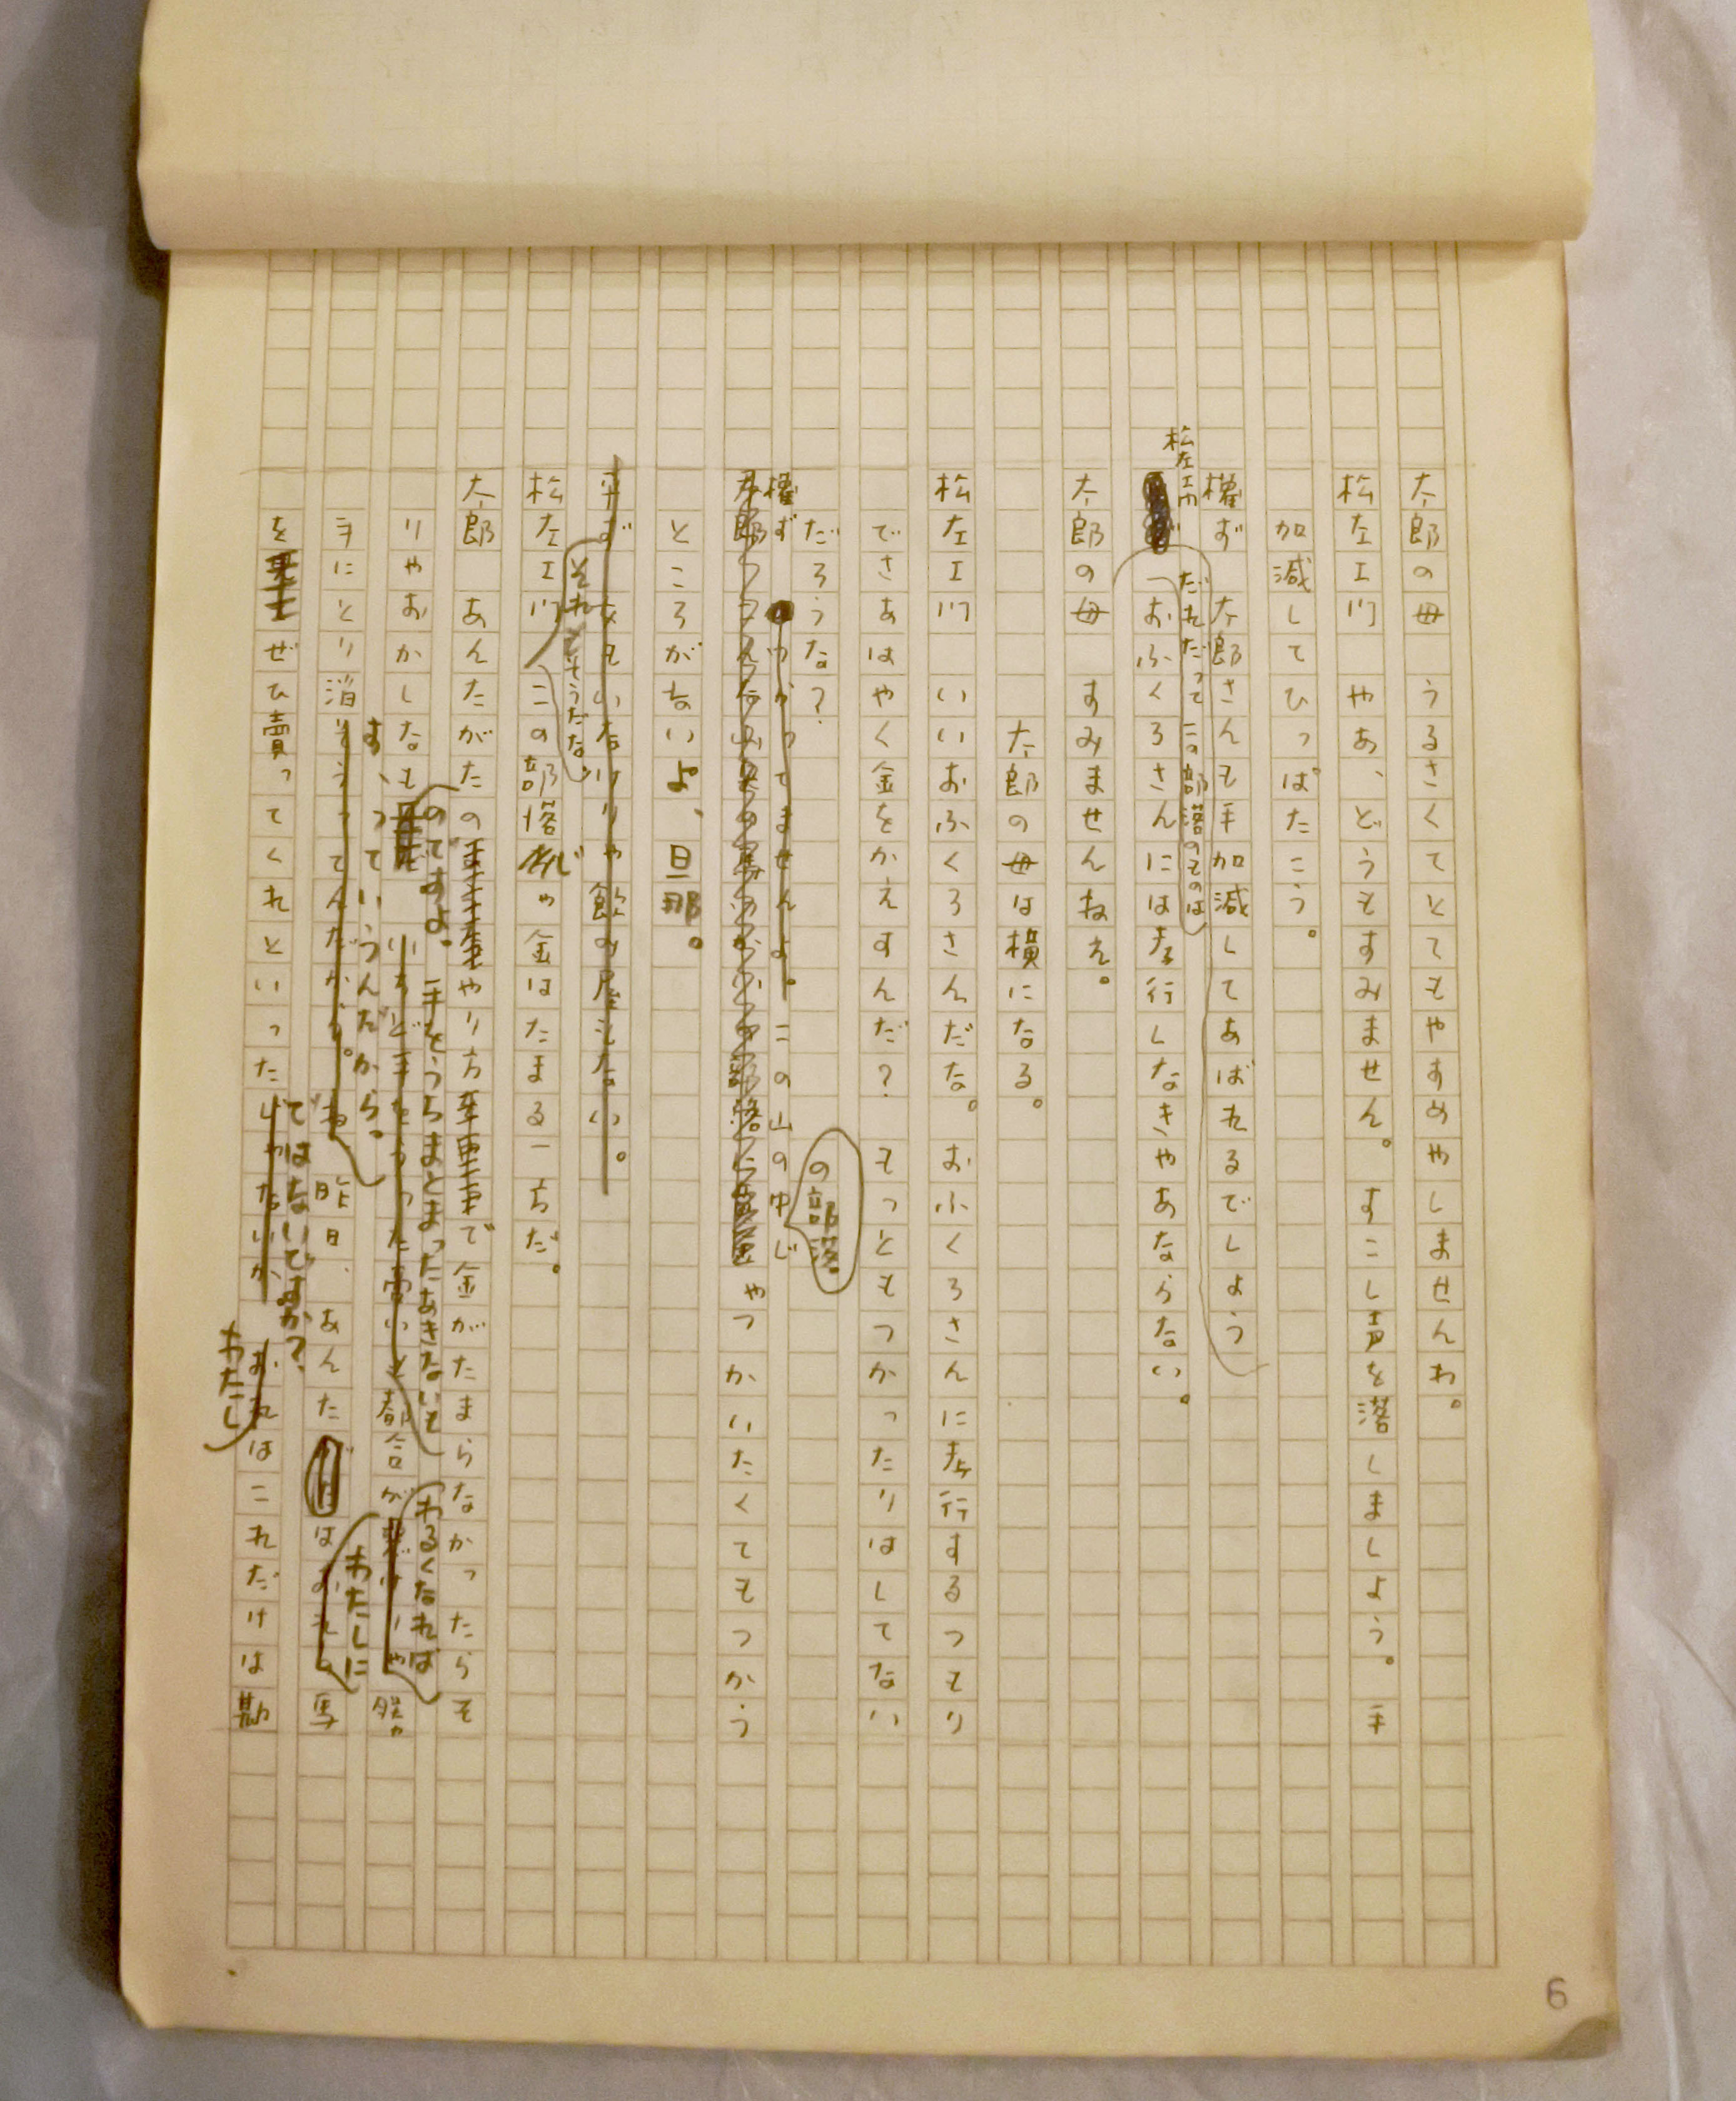 太郎の母　うるさくてとてもやすめやしませんわ。
松左エ門　やあ、どうもすみません。　すこし声を落しましょう。　手
加減してひっぱたこう。
権ず　太郎さんも手加減してあばれるでしょう
松左エ門
だれだってこの部落のものは
おふくろさんには孝行しなきゃあならない。
太郎の母　すみませんねえ。
太郎の母は横になる。
松左エ門　いいおふくろさんだな。　おふくろさんに孝行するつもり
でさあはやく金をかえすんだ？　もっともつかったりはしてない
だろうな？
の部落
権ず　つかってませんよ。　この山の中じ
やつかいたくてもつかう
ところがないよ、旦那。
平ず　女もいなけりゃ飲み屋もない。
それもそうだな
松左エ門　この部落じゃ金はたまる一方だ。
太郎　あんたがたのやり方で金がたまらなかったらそ
のですよ。　手をうちまとまったあきないも　わるくなれば
りゃおかしなも　いちど手をうった商いも都合が悪けりゃ勝
す、っていうんだから。　わたしに
手にとり消そうってんだから。　ね　昨日、あんたはおれの馬
ではないですか？
をぜひ賣ってくれといったじゃないか　おれはこれだけは勘
わたし
6